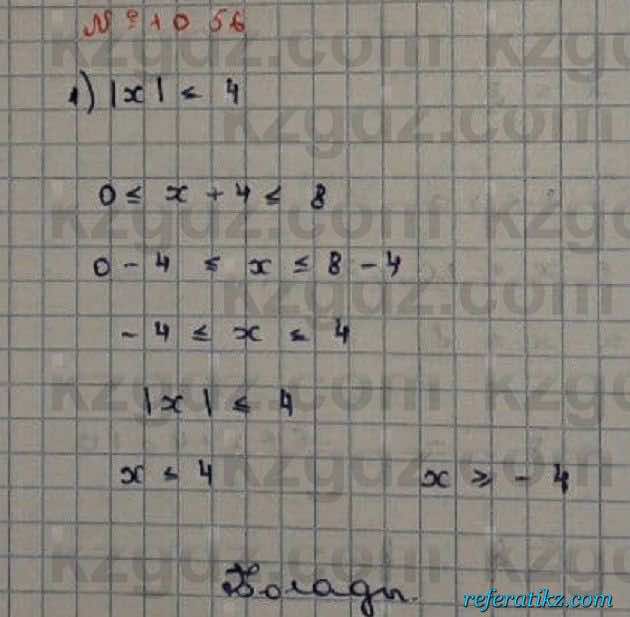 № 1056
1) |x| ≤ 4
0 ≤ x + 4 ≤ 8
0 - 4 ≤ x ≤ 8 - 4
- 4 ≤ x ≤ 4
|x| ≤ 4
x ≤ 4 x ≥ - 4
Болады.
kzgdz.com
referatikz.com